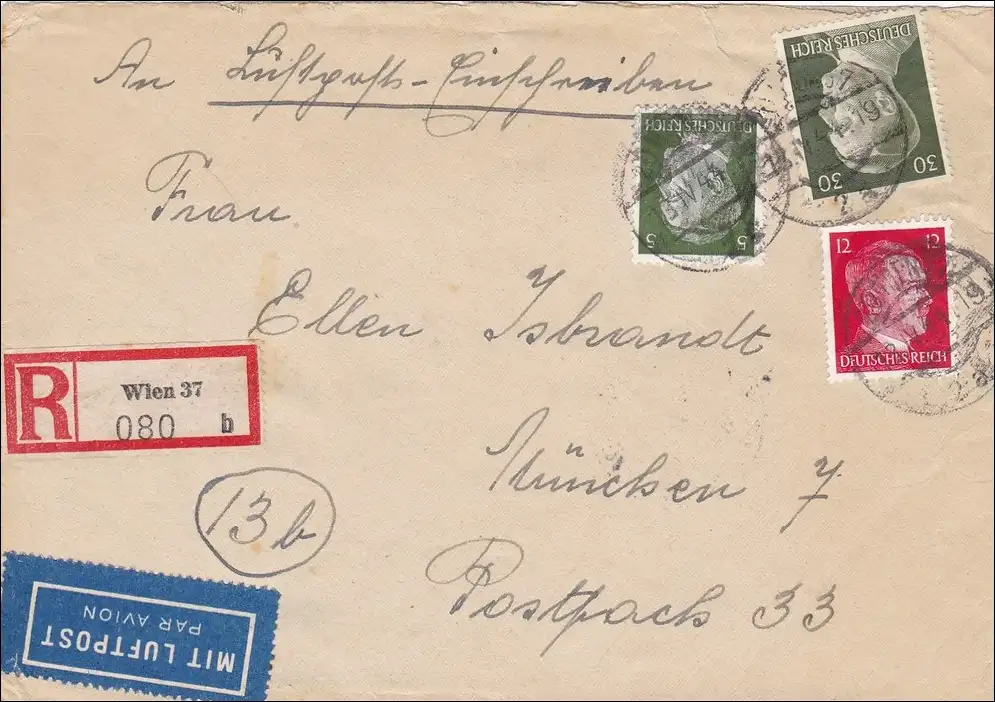 An Luftpost-Einschreiben
Frau
Ellen Isbrandt
München 7
Postfach 33
13b
R
Wien 37
080 b
MIT LUFTPOST
PAR AVION
DEUTSCHES REICH
30 30
DEUTSCHES REICH
5 5
12 12
DEUTSCHES REICH